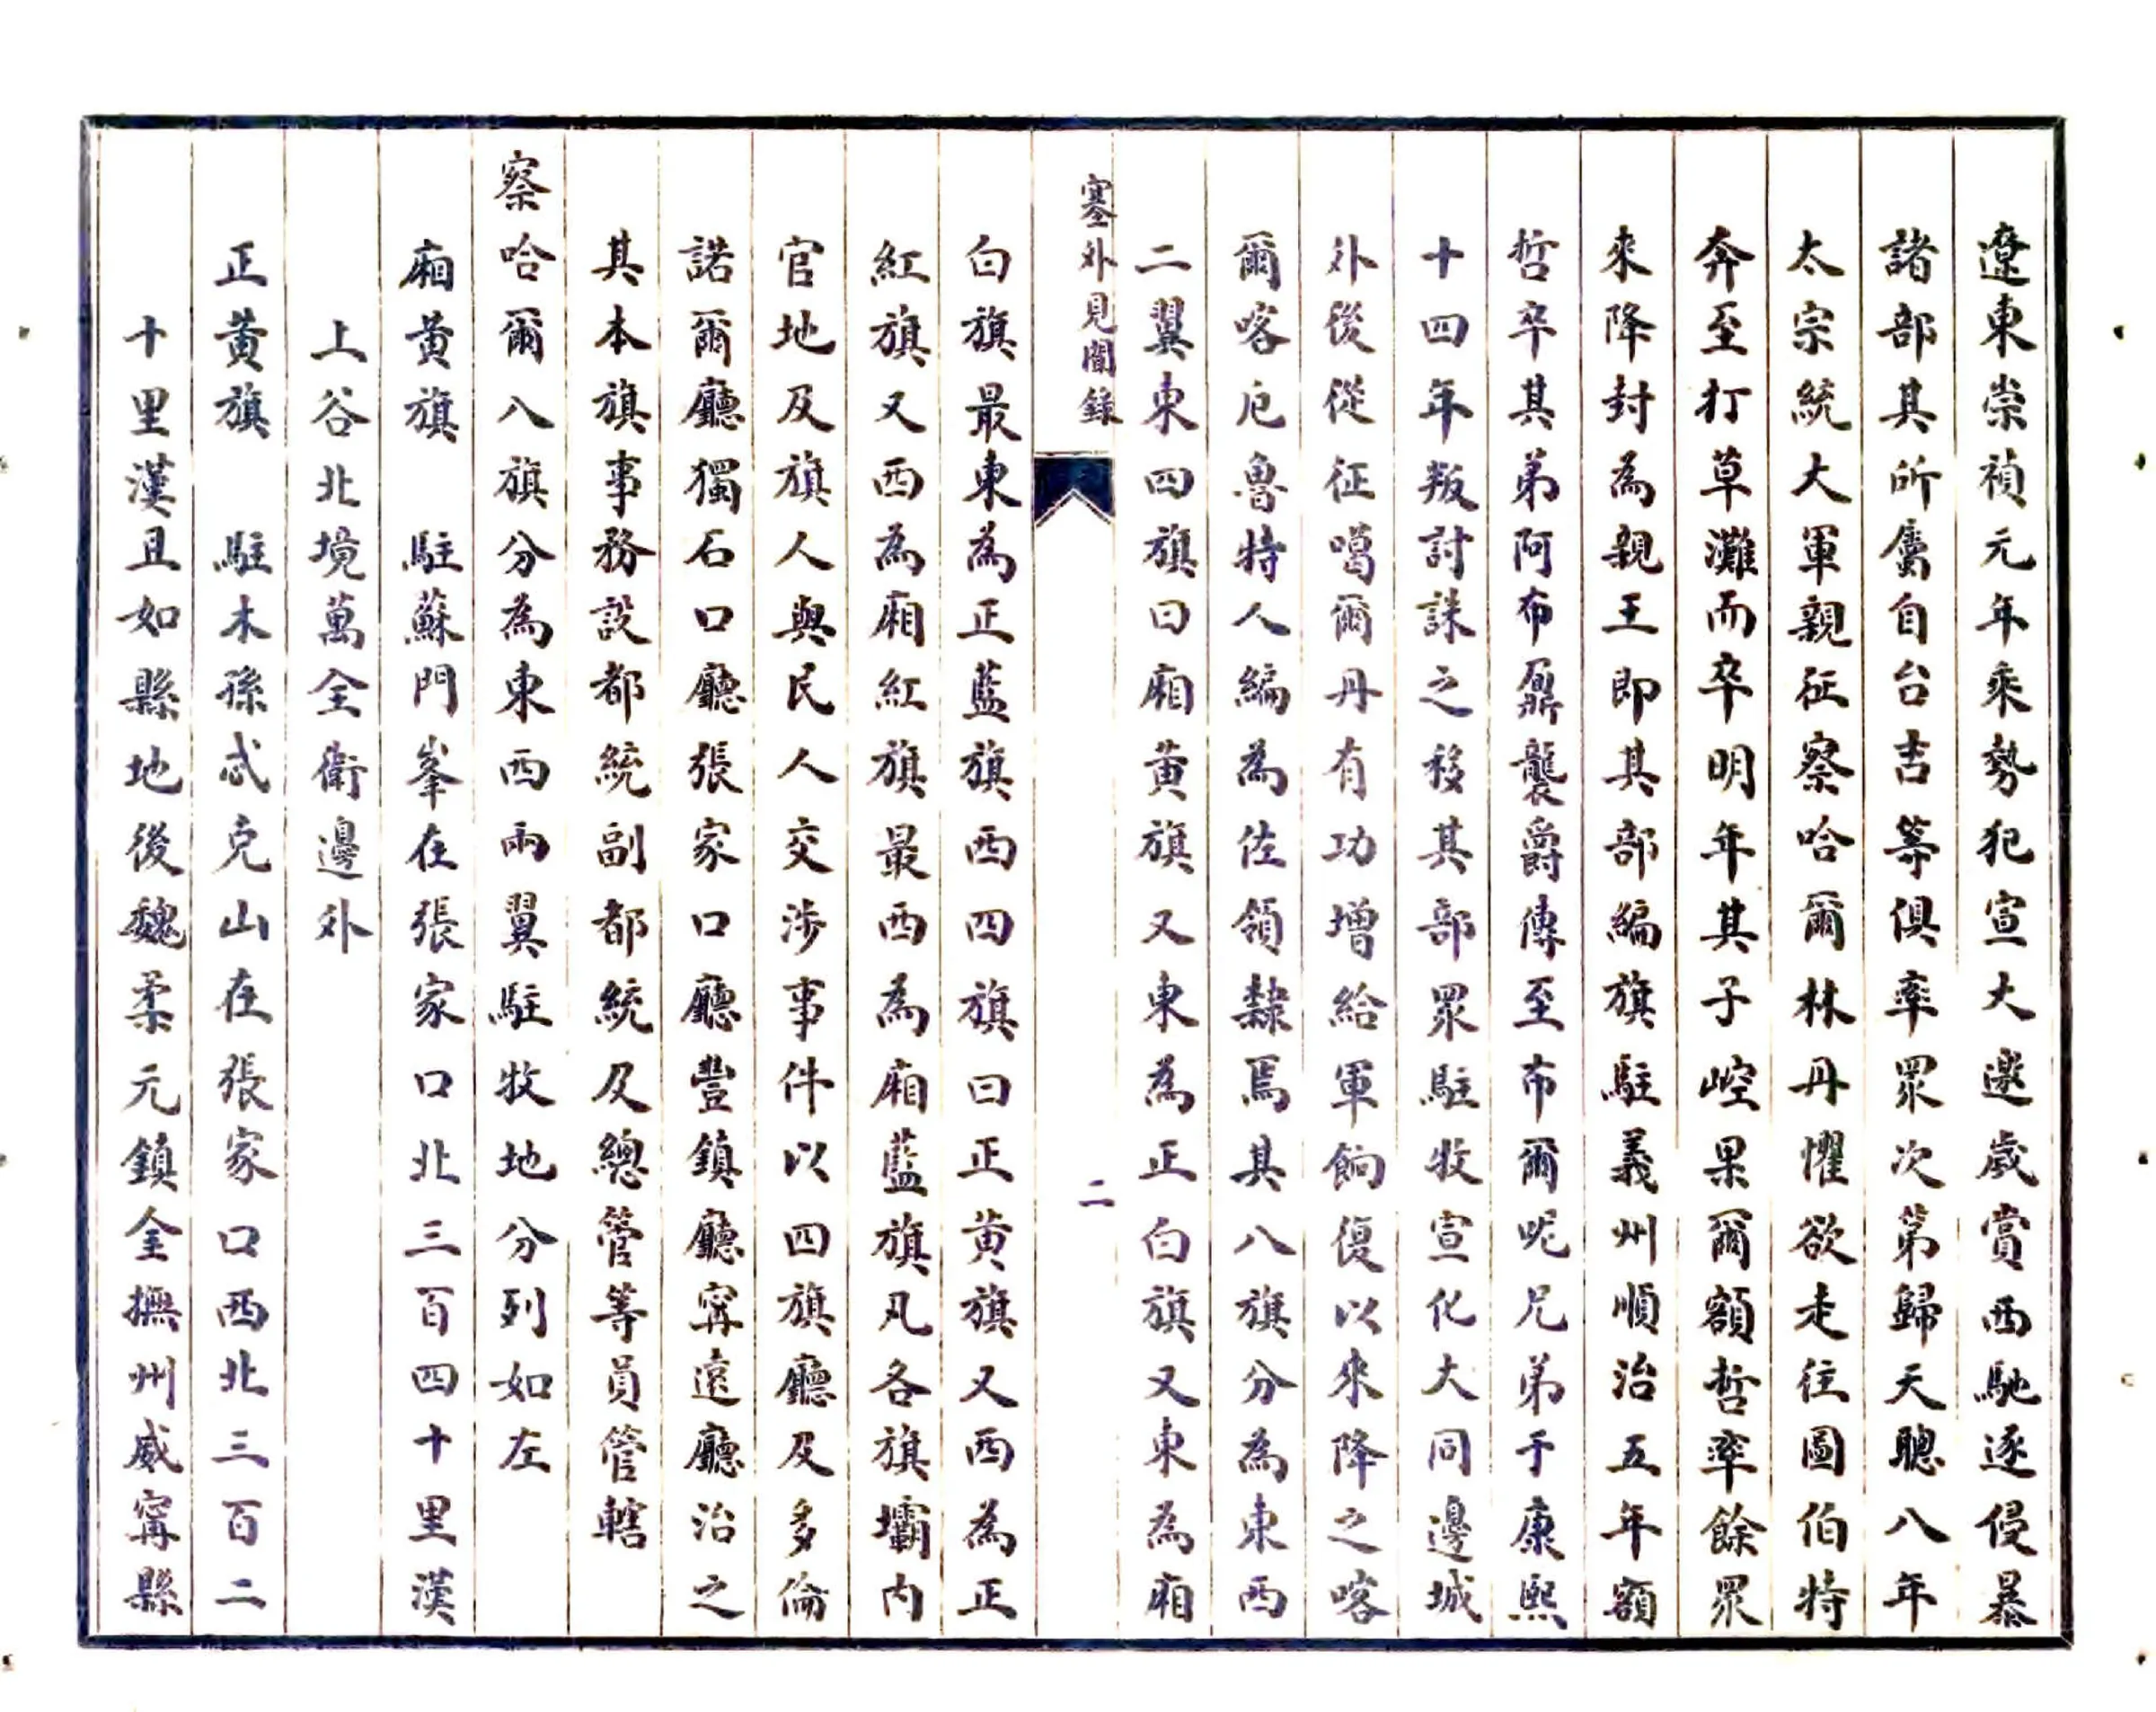 遼東崇禎元年乘勢犯宣大邀歲賞西馳逐侵暴
諸部其所屬自台吉等俱率眾次第歸天聰八年
太宗統大軍親征察哈爾林丹懼欲走往圖伯特
奔至打草灘而卒明年其子崆果爾額哲率餘眾
來降封為親王即其部編旗駐義州順治五年額
哲卒其弟阿布鼐襲爵傳至布爾呢兄弟于康熙
十四年叛討誅之移其部眾駐牧宣化大同邊城
外後從征噶爾丹有功增給軍餉復以來降之喀
爾喀厄魯特人編為佐領隸焉其八旗分為東西
二翼東四旗曰廂黃旗又東為正白旗又東為廂
塞外見聞錄
二
白旗最東為正藍旗西四旗曰正黃旗又西為正
紅旗又西為廂紅旗最西為廂藍旗凡各旗壩內
官地及旗人與民人交涉事件以四旗廳及多倫
諾爾廳獨石口廳張家口廳豐鎮廳寗遠廳治之
其本旗事務設都統副都統及總管等員管轄
察哈爾八旗分為東西兩翼駐牧地分列如左
廂黃旗　駐蘇門峯在張家口北三百四十里漢
上谷北境萬全衛邊外
正黃旗　駐木孫忒克山在張家口西北三百二
十里漢且如縣地後魏柔元鎮全撫州威寗縣